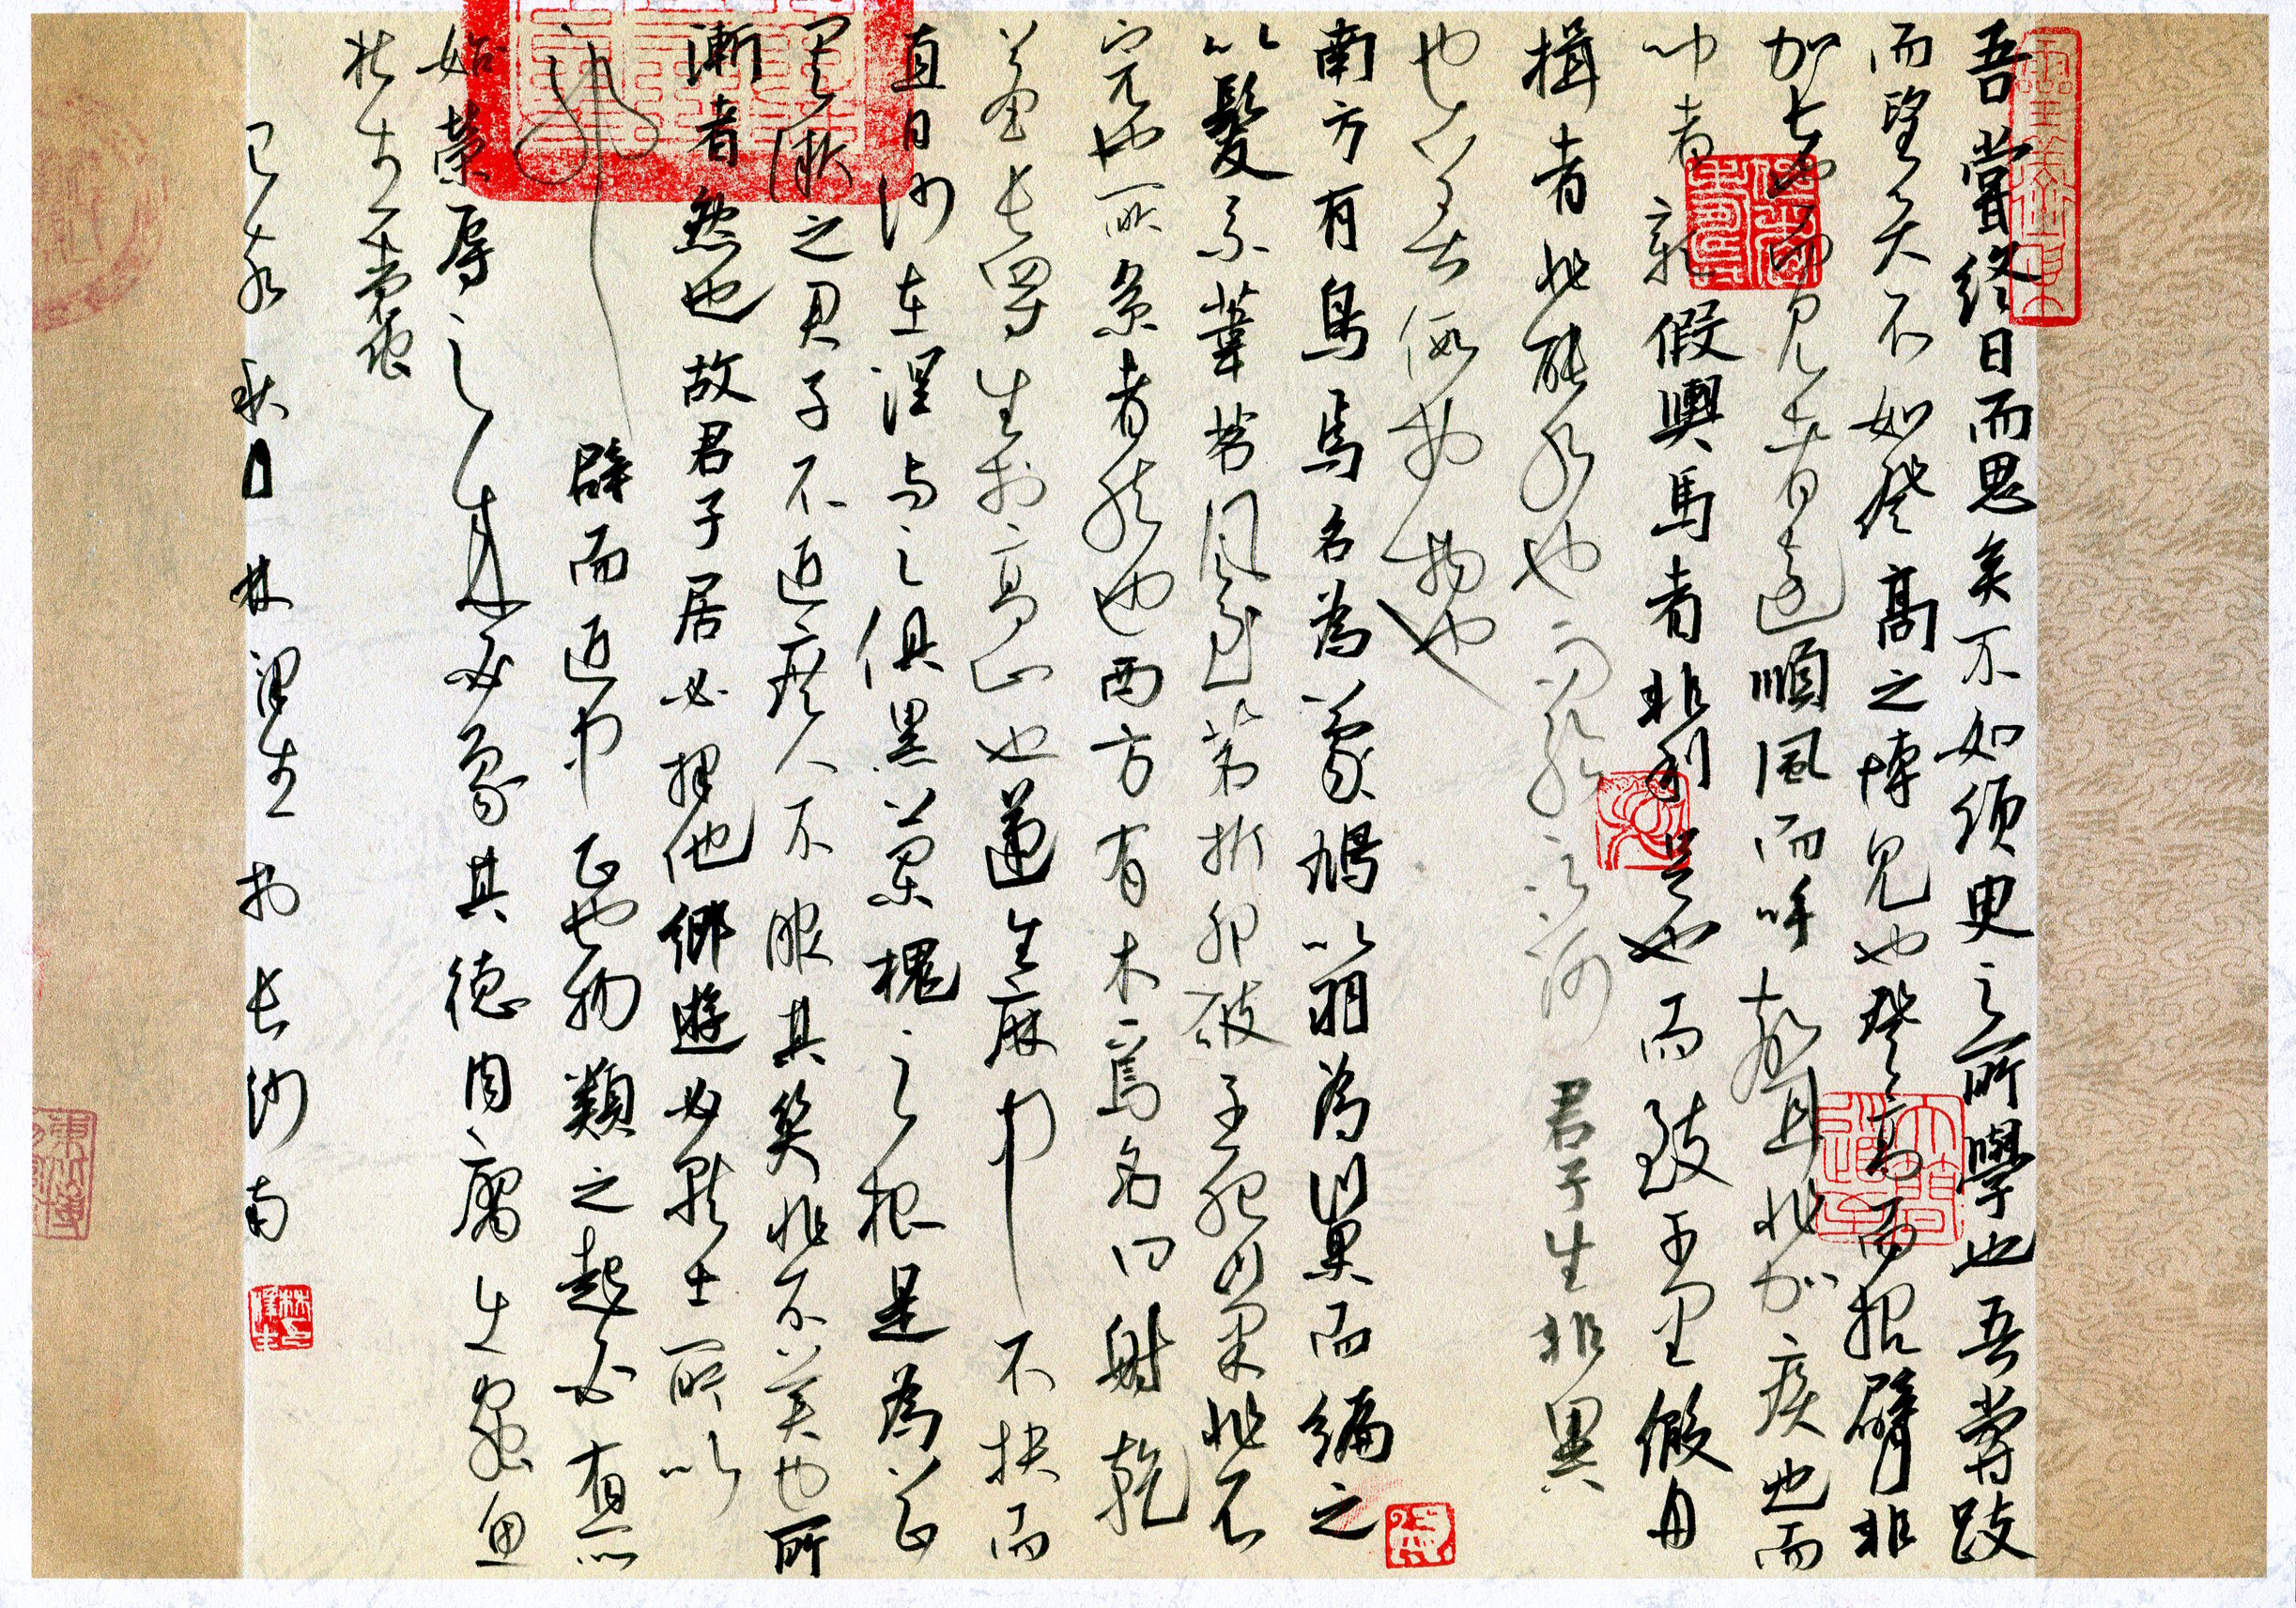 吾嘗終日而思矣不如須臾之所學也吾嘗跂
而望矣不如登高之博見也登高而招臂非
加長也而見者遠順風而呼聲非加疾也而
者彰假輿馬者非利足也而致千里假舟
楫者非能水也而絕江河君子生非異
也善假於物也
南方有鳥焉名為蒙鳩以羽為巢而編之
以髮系葦苕風至苕折卵破子死巢非不
完也所系者然也西方有木焉名曰射乾
莖長四寸生於高山也蓬生麻中不扶而
直白沙在涅與之俱黑蘭槐之根是為芷
其漸之君子不近庶人不服其質非不美也所
漸者然也故君子居必擇鄉遊必就士所以
辟而近中正也物類之起必有所
始榮辱之來必象其德肉腐生蟲魚
枯生蠹
秋月林 於長沙南